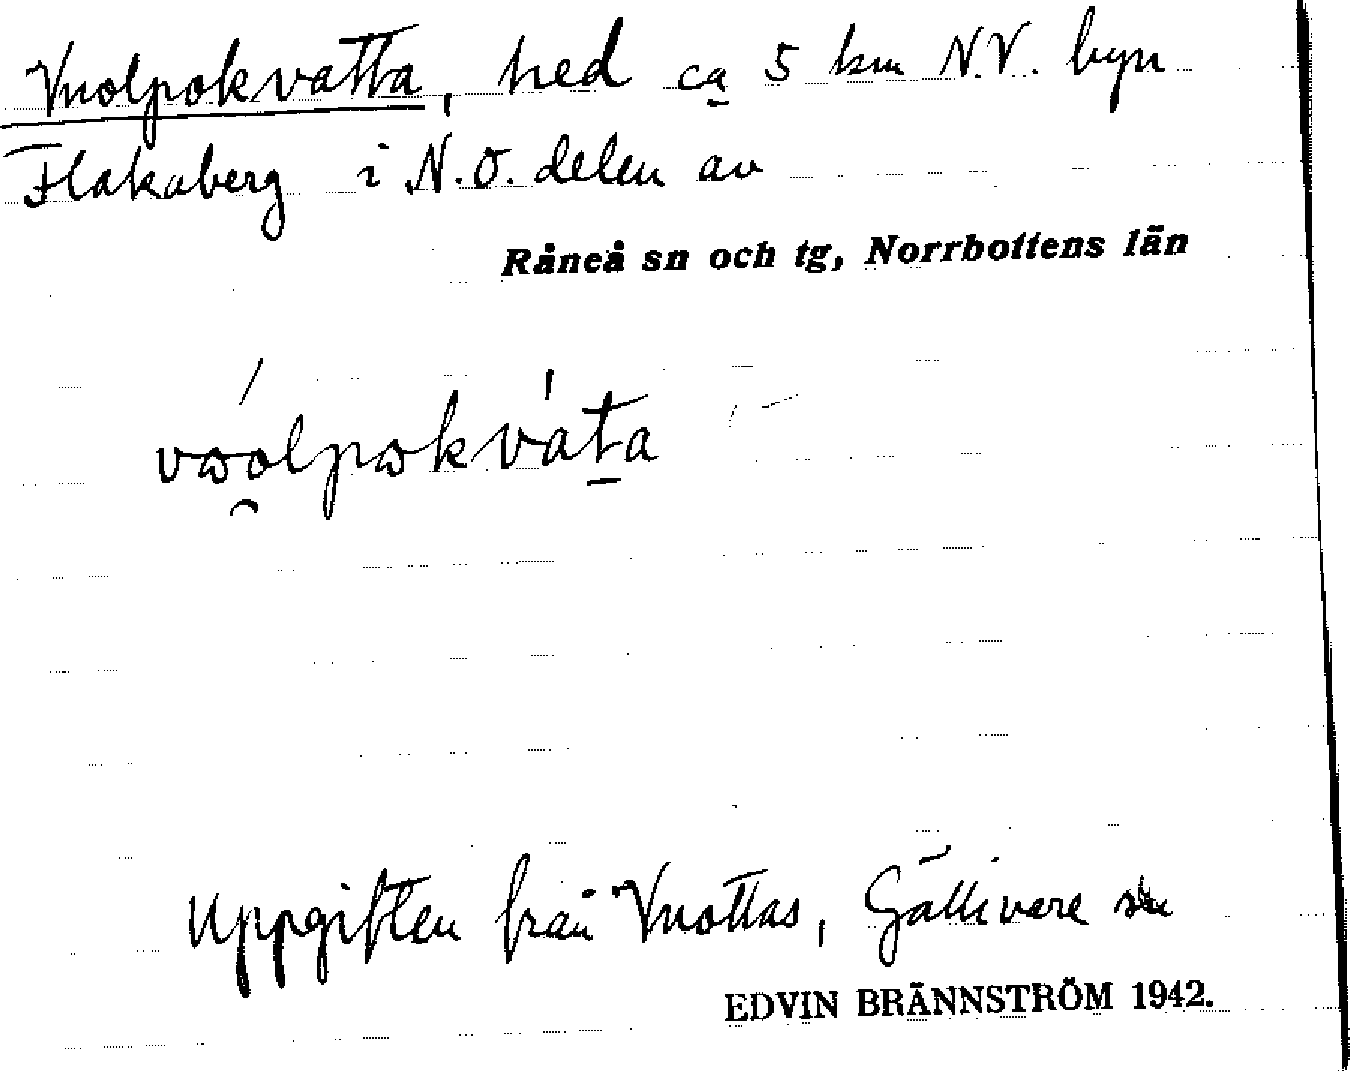 Vuolpokvatta, hed ca 5 km N.V. byn
Flakaberg i N.O. delen av
Råneå sn och tg, Norrbottens län
vωo̯lpωkváta
Uppgiften från Vuottas, Gällivare sn
EDVIN BRÄNNSTRÖM 1942.